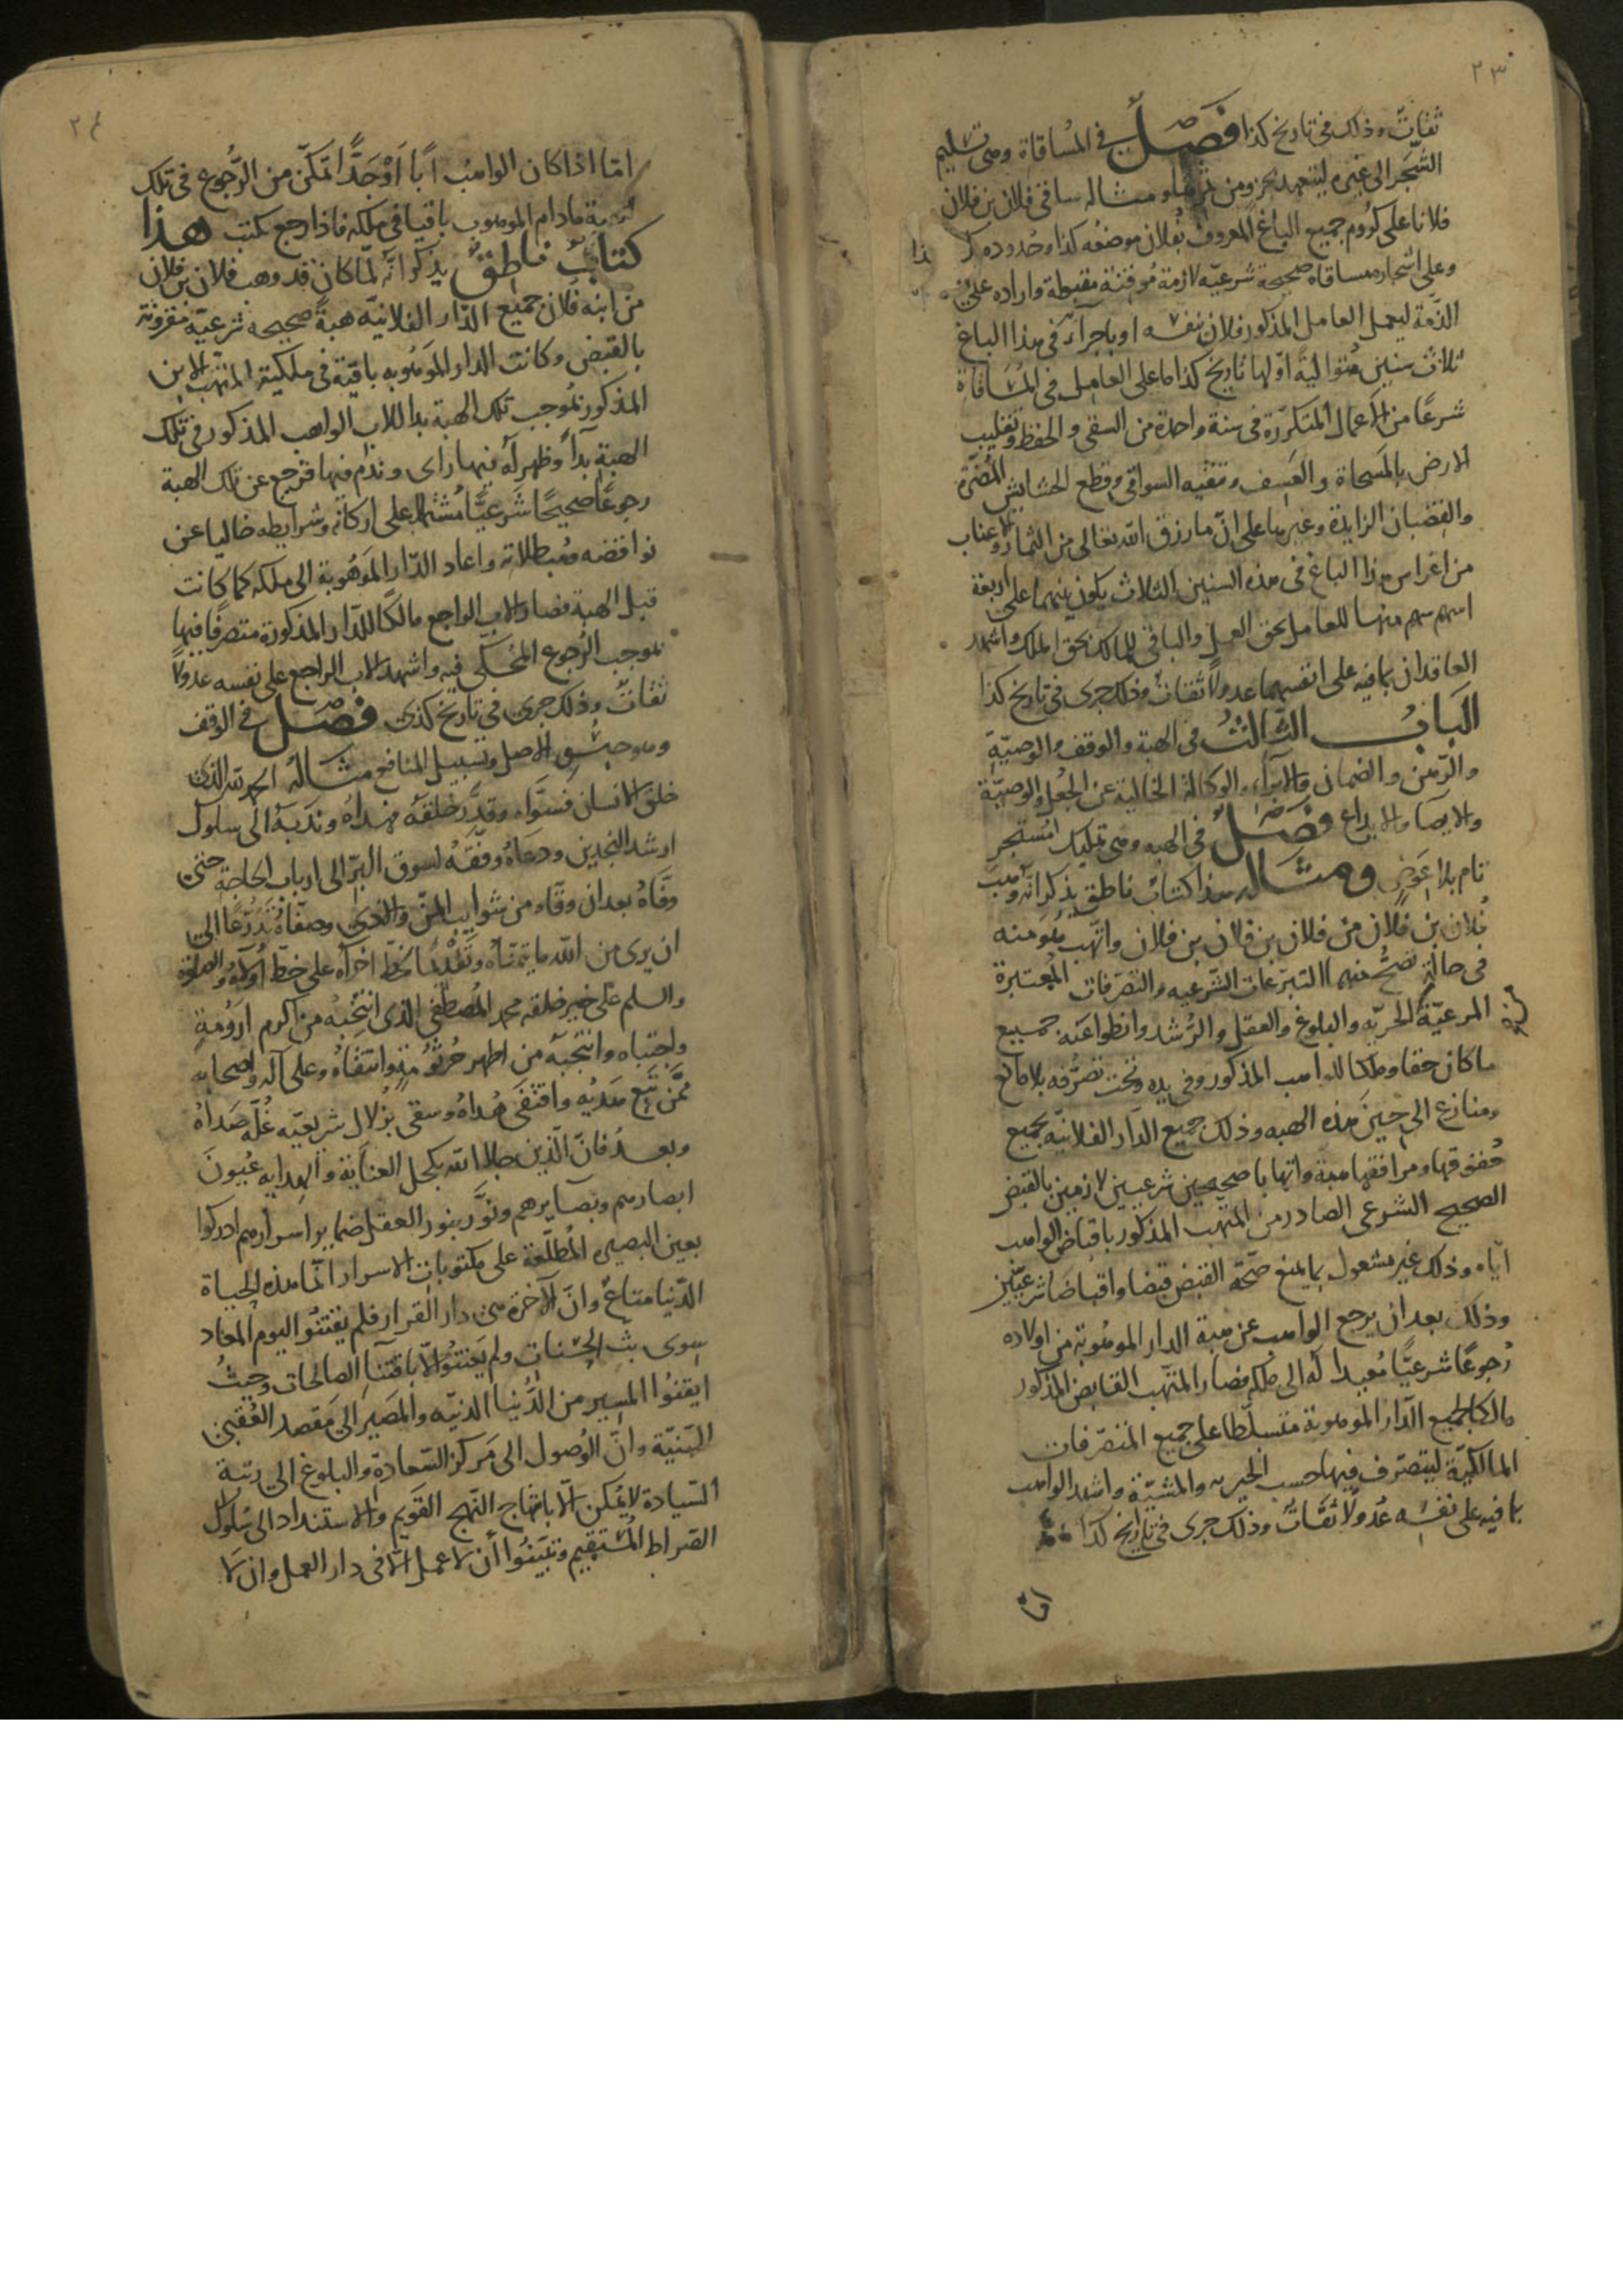 ٢٣
ثقات وذلك في تاريخ كذا فصل في المساقاة وهي تسليم
الشجر الى غيره ليتعهد بجزء من ثمرها ومثاله ساقى فلان بن فلان
فلانا على كروم جميع الباغ المعروف بفلان موضعه كذا وحدوده كذا
وعلى اشجاره مساقاة صحيحة شرعيّه لازمة مؤقتة مقبطة واراده على
الذمّة ليعمل العامل المذكور فلان بنفسه او باجرآئه في هذا الباغ
ثلاث سنين متوالية اوّلها تاريخ كذا ما على العامل في المساقاة
شرعًا من الاعمال المتكرّرة في سنة واحدة من السقى والحفظ وتقليب
الارض بالمسحاة والعسف وتنقيه السواقى وقطع الحشايش المضرّة
والقضبان الزايدة وغيرها على انّ ما رزق الله تعالى من الثمار والاعناب
من اغراس هذا الباغ في هذه السنين الثلاث يكون بينهما على اربعة
اسهم سهم منها للعامل بحق العمل والباقى للمالك بحق الملك واشهد
العاقدان بما فيه على انفسهما عدولًا ثقات وذلك جرى في تاريخ كذا
الباب الثالث في الهبة والوقف والوصيّة
والرّهن والضمان والابرآء والوكالة الخالية عن الجُعل والوصيّة
والايصآ والايداع فصل في الهبه وهى تمليك
تام بلا عوض ومثاله هذا كتاب ناطق بذكر انّه وهب
فلان بن فلان من فلان بن فلان بن فلان واتّهب هو منه
في حالة تصحّ منهما التبرّعات الشّرعيه والتصرّفات المعتبرة
المرعيّة كالحريّه والبلوغ والعقل والرّشد وانطواعيّة جميع
ما كان حقا وملكا للواهب المذكور وفي يده وتحت تصرّفه بلا مانع
ومنازع الى حين هذه الهبه وذلك جميع الدّار الفلانيّه بجميع
حقوقها ومرافقها هبة واتهابا صحيحين شرعيين لازمين بالقبض
الصحيح الشرعى الصادر من المتّهب المذكور باقباض الواهب
ايّاه وذلك غير مشغول بما يمنع صحّة القبض قبضا واقباضا شرعيّين
وذلك بعد ان يرجع الواهب عن هبة الدار الموهوبة من اولاده
رجوعًا شرعيًّا مُعيدا له الى ملكه فصار المتّهب القابض المذكور
مالكا لجميع الدّار الموهوبة متسلّطا على جميع المتصرّفات
المالكيّة ليتصرف فيها حسب الخيره والمشيّة واشهد الواهب
بما فيه على نفسه عدولًا ثقات وذلك جرى في تاريخ كذا
امّا
٢٤
امّا اذا كان الواهب ابًا اوْ جدًّا تمكّن من الرّجوع في تلك
الهبة ما دام الموهوب باقيا في ملكه فاذا رجع يكتب هذا
كتاب ناطق يذكر انّه لمّا كان قد وهب فلان بن فلان
من ابنه فلان جميع الدّار الفلانيّه هبةً صحيحه شرعيّة مقرونة
بالقبض وكانت الدار الموهوبه باقية في ملكية المتّهب الابن
المذكور بموجب تلك الهبة بدا للاب الواهب المذكور في تلك
الهبة بداً وظهر له فيها راى وندم فيها فرجع عن تلك الهبة
رجوعًا صحيحًا شرعيًّا مشتملا على اركانه وشرايطه خاليا عن
نواقضه ومبطلاته واعاد الدّار الموهوبة الى ملكه كما كانت
قبل الهبة فصار الاب الراجع مالكًا للدّار المذكورة متصرفًا فيها
بموجب الرّجوع المحكى فيه واشهد الاب الراجع على نفسه عدولا
ثقات وذلك جرى في تاريخ كذى فصل في الوقف
وهو حبس الاصل وتسبيل المنافع مثاله الحمد لله الذى
خلق الانسان فسوّاه وقدّر خلقه فهداه وندبه الى سلوك
ارشد النجدين ودعاه ووفّقه لسوق البرّ الى ارباب الحاجة حتى
وفّاه بعد ان وقّاه من شوايب المنّ والاذى وصفّاه تدرّعًا الى
ان يرى من الله ما يتمنّاه وتقدّما بخطّ اخرآه على خطّ اولاه والصلوة
والسلم على خير خلقه محمد المصطفى الذى انتخبه من اكرم ارومة
واجتباه وانتجبه من اطهر جرثومة وانتقاه وعلى آله واصحابه
ممّن تبع هديه واقتفى هداه وسقى بزلال شريعته غلّة صداه
وبعد فانّ الّذين جلا الله بكحل العناية والهدايه عيون
ابصارهم وبصآيرهم ونوّر بنور العقل ضماير اسرارهم ادركوا
بعين البصيرة المطلّعة على مكتوبات الاسرار انّما هذه الحياة
الدّنيا متاع وانّ الآخرة هى دار القرار فلم يقتنوا اليوم المعاد
سوى بثّ الحسنات ولم يعتنوا الّا باقتنآ الصالحات وحيث
ايقنوا المسير من الدّنيا الدنيّه والمصير الى مقصد العُقبى
السّنيّة وانّ الوصول الى مركز السّعادة والبلوغ الى رتبة
السّيادة لا يمكن الّا بانتهاج النّهج القويم والاستنداد الى سلوك
الصّراط المستقيم وتيقّنوا أن لا عمل الّا في دار العمل وان لا